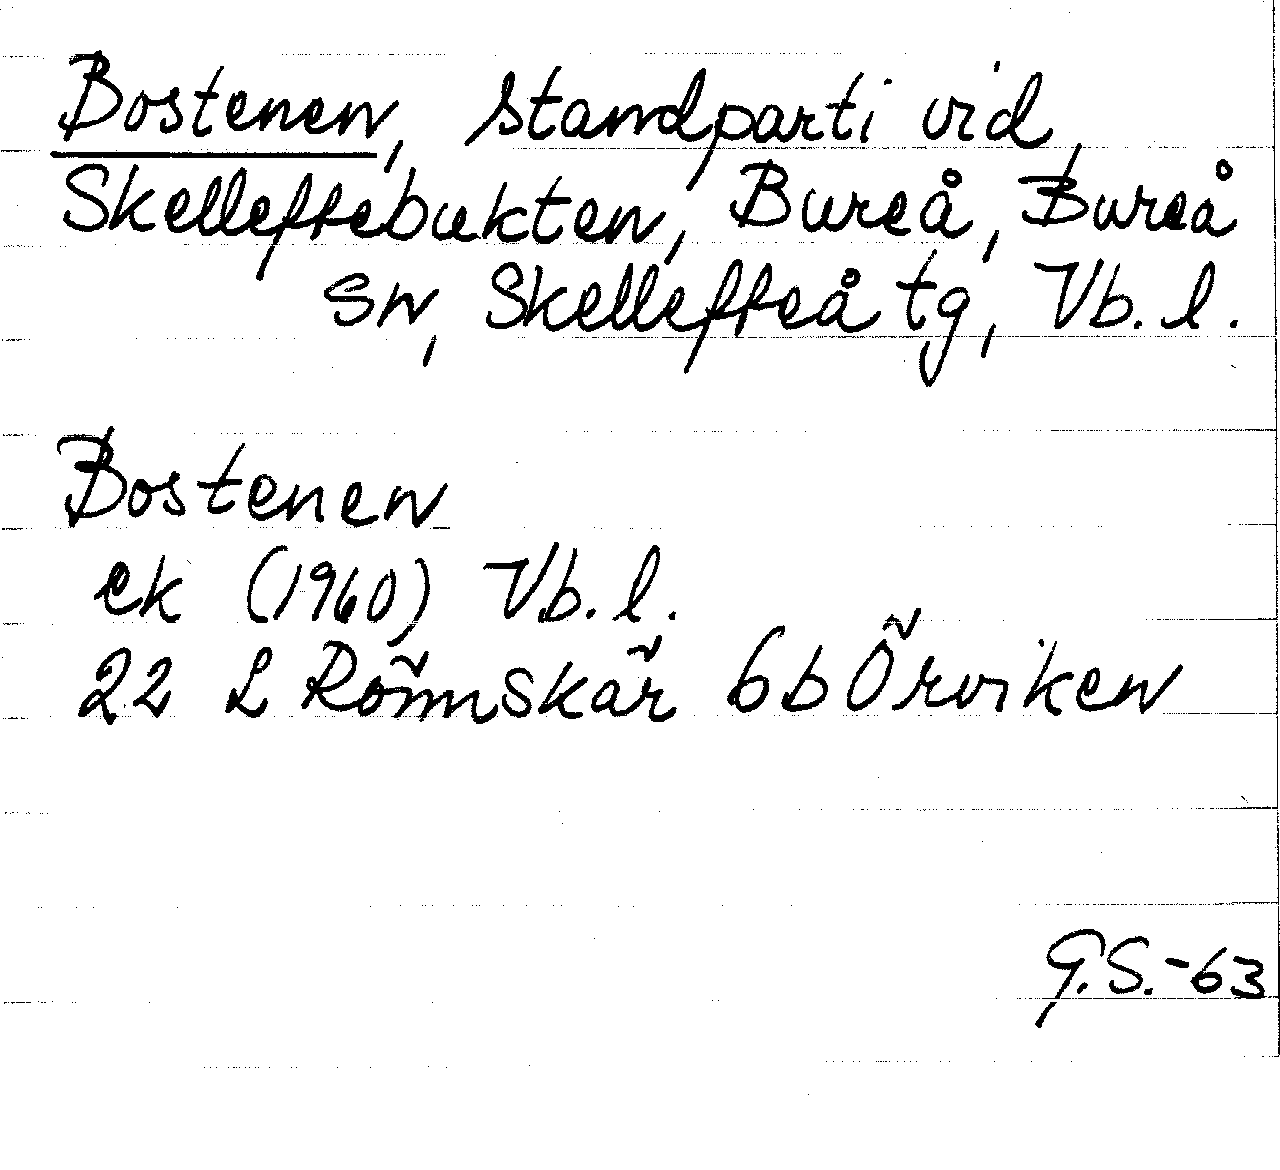 Bostenen, standparti vid
Skelleftebukten, Bureå, Bureå
sn, Skellefteå tg, Vb. l.
Bostenen
ek (1960) Vb. l.
22 L Rönnskär 6b Örviken
G.S.-63